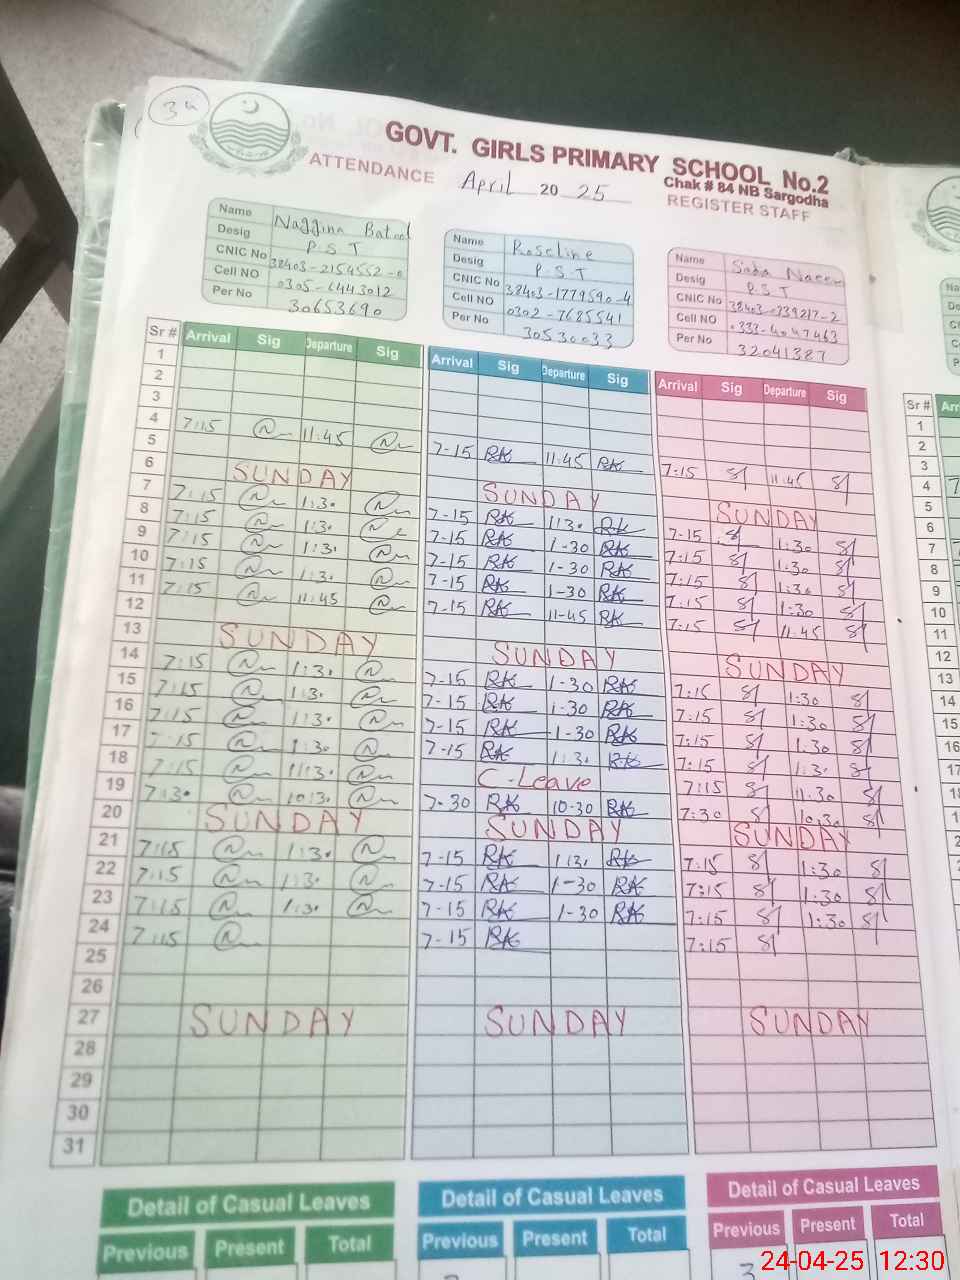 3
GOVT. GIRLS PRIMARY SCHOOL No.2
Chak # 84 NB Sargodha
ATTENDANCE April 20 25 REGISTER STAFF
Name Naggina Batool
Desig P.S.T
CNIC No 38403-2154552-0
Cell NO 0305-6443012
Per No 30653690
Name Roseline
Desig P.S.T
CNIC No 38403-1779590-4
Cell NO 0302-7685541
Per No 30530033
Name Saba Naeem
Desig P.S.T
CNIC No 38403-0339217-2
Cell NO 0333-4047463
Per No 32041387
Sr # Arrival Sig Departure Sig Arrival Sig Departure Sig Arrival Sig Departure Sig
1
2
3
4
5 7:15 11:45 7-15 RK 11:45 RK 7:15 11:45
6 SUNDAY SUNDAY SUNDAY
7 7:15 1:30 7-15 RK 1:30 RK 7-15 1:30
8 7:15 1:30 7-15 RK 1-30 RK 7:15 1:30
9 7:15 1:30 7-15 RK 1-30 RK 7:15 1:30
10 7:15 1:30 7-15 RK 1-30 RK 7:15 1:30
11 7:15 11:45 7-15 RK 11-45 RK 7:15 11:45
12
13 SUNDAY SUNDAY SUNDAY
14 7:15 1:30 7-15 RK 1-30 RK 7:15 1:30
15 7:15 1:30 7-15 RK 1-30 RK 7:15 1:30
16 7:15 1:30 7-15 RK 1-30 RK 7:15 1:30
17 7:15 1:30 7-15 RK 1:30 RK 7:15 1:30
18 7:15 11:30 C-Leave 7:15 11:30
19 7:30 10:30 7-30 RK 10-30 RK 7:30 10:30
20 SUNDAY SUNDAY SUNDAY
21 7:15 1:30 7-15 RK 1:30 RK 7:15 1:30
22 7:15 1:30 7-15 RK 1-30 RK 7:15 1:30
23 7:15 1:30 7-15 RK 1-30 RK 7:15 1:30
24 7:15 7-15 RK 7:15
25
26
27 SUNDAY SUNDAY SUNDAY
28
29
30
31
Detail of Casual Leaves Detail of Casual Leaves Detail of Casual Leaves
Previous Present Total Previous Present Total Previous Present Total
3
Sr #
1
2
3
4
5
6
7
8
9
10
11
12
13
14
15
16
17
24-04-25 12:30